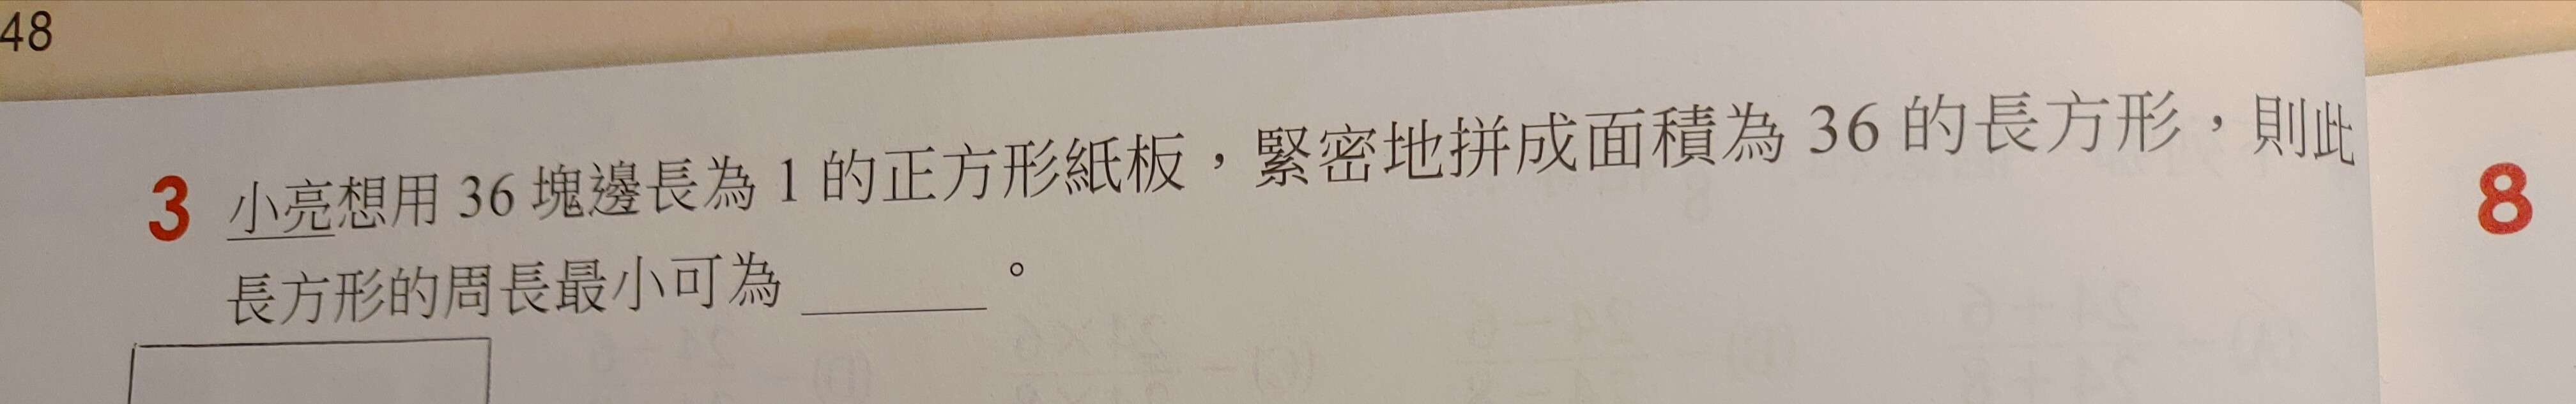 48
3 小亮想用 36 塊邊長為 1 的正方形紙板，緊密地拼成面積為 36 的長方形，則此
長方形的周長最小可為＿＿＿。
8